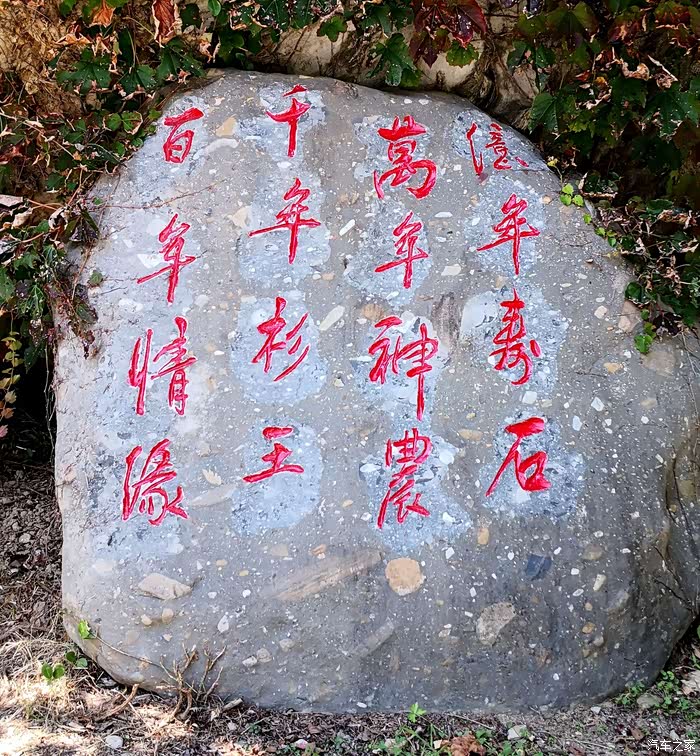 億年壽石
萬年神農
千年杉王
百年情緣
汽车之家